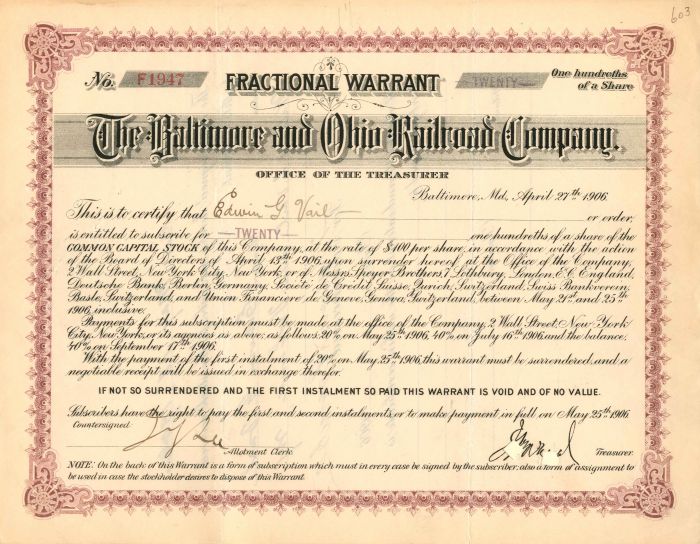 603
No. F1947 FRACTIONAL WARRANT TWENTY One hundredths
of a Share
The Baltimore and Ohio Railroad Company.
OFFICE OF THE TREASURER
Baltimore, Md., April 27th 1906.
This is to certify that Edwin G. Vail or order,
is entitled to subscribe for TWENTY one hundredths of a share of the
COMMON CAPITAL STOCK of this Company, at the rate of $100 per share, in accordance with the action
of the Board of Directors of April 13th 1906, upon surrender hereof at the Office of the Company,
2 Wall Street, New York City, New York, or of Messrs Speyer Brothers, 7 Lothbury, London, E.C. England,
Deutsche Bank, Berlin, Germany, Societe de Credit Suisse, Zurich, Switzerland, Swiss Bankverein,
Basle, Switzerland, and Union Financiere de Geneve, Geneva, Switzerland, between May 21st and 25th
1906, inclusive.
Payments for this subscription must be made at the office of the Company, 2 Wall Street, New York
City, New York, or its agencies as above, as follows, 20% on May 25th 1906, 40% on July 16th 1906, and the balance,
40% on September 17th 1906.
With the payment of the first instalment of 20% on May 25th 1906, this warrant must be surrendered, and a
negotiable receipt will be issued in exchange therefor.
IF NOT SO SURRENDERED AND THE FIRST INSTALMENT SO PAID THIS WARRANT IS VOID AND OF NO VALUE.
Subscribers have the right to pay the first and second instalments or to make payment in full on May 25th 1906.
Countersigned
Lee
Allotment Clerk. Treasurer.
NOTE: On the back of this Warrant is a form of subscription which must in every case be signed by the subscriber; also a form of assignment to
be used in case the stockholder desires to dispose of this Warrant.